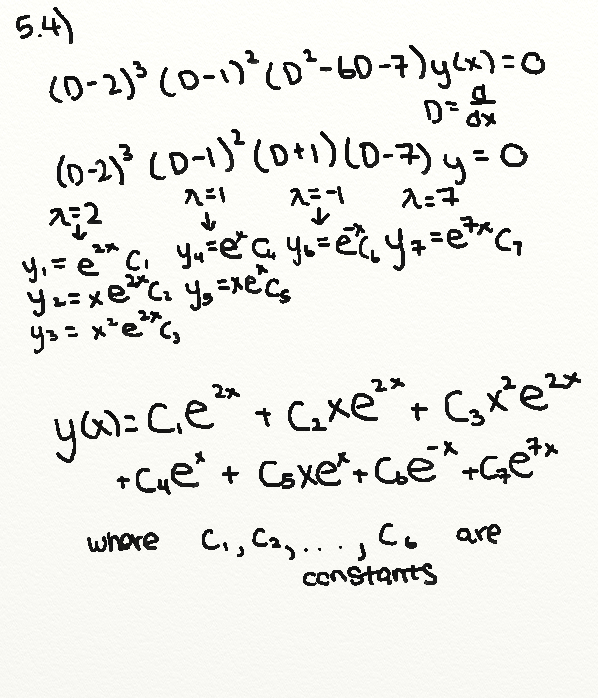 5.4)
(D-2)³ (D-1)² (D²-6D-7)y(x)=0
D=d/dx
(D-2)³ (D-1)² (D+1)(D-7) y=0
λ=2 λ=1 λ=-1 λ=7
↓ ↓ ↓
y₁=e²ˣ C₁ y₄=eˣ C₄ y₆=e⁻ˣC₆ y₇=e⁷ˣ C₇
y₂=xe²ˣC₂ y₅=xeˣC₅
y₃=x²e²ˣC₃
y(x)=C₁e²ˣ + C₂xe²ˣ + C₃x²e²ˣ
+C₄eˣ + C₅xeˣ+C₆e⁻ˣ+C₇e⁷ˣ
where C₁, C₂, ..., C₆ are
constants